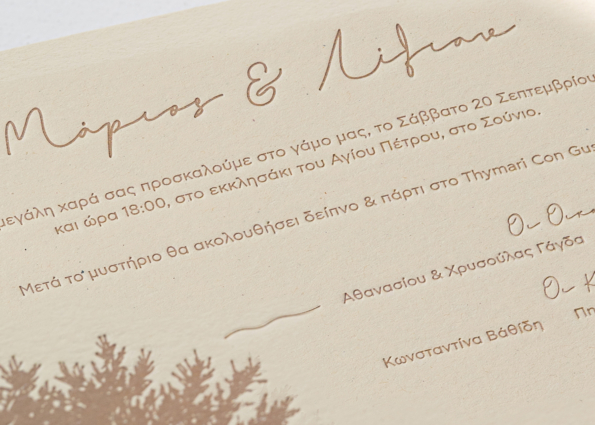 Μάριος & Λίλιαν
μεγάλη χαρά σας προσκαλούμε στο γάμο μας, το Σάββατο 20 Σεπτεμβρίου
και ώρα 18:00, στο εκκλησάκι του Αγίου Πέτρου, στο Σούνιο.
Μετά το μυστήριο θα ακολουθήσει δείπνο & πάρτι στο Thymari Con Gus
Οι
Αθανασίου & Χρυσούλας Γάγδα
Οι Κ
Κωνσταντίνα Βάθίδη